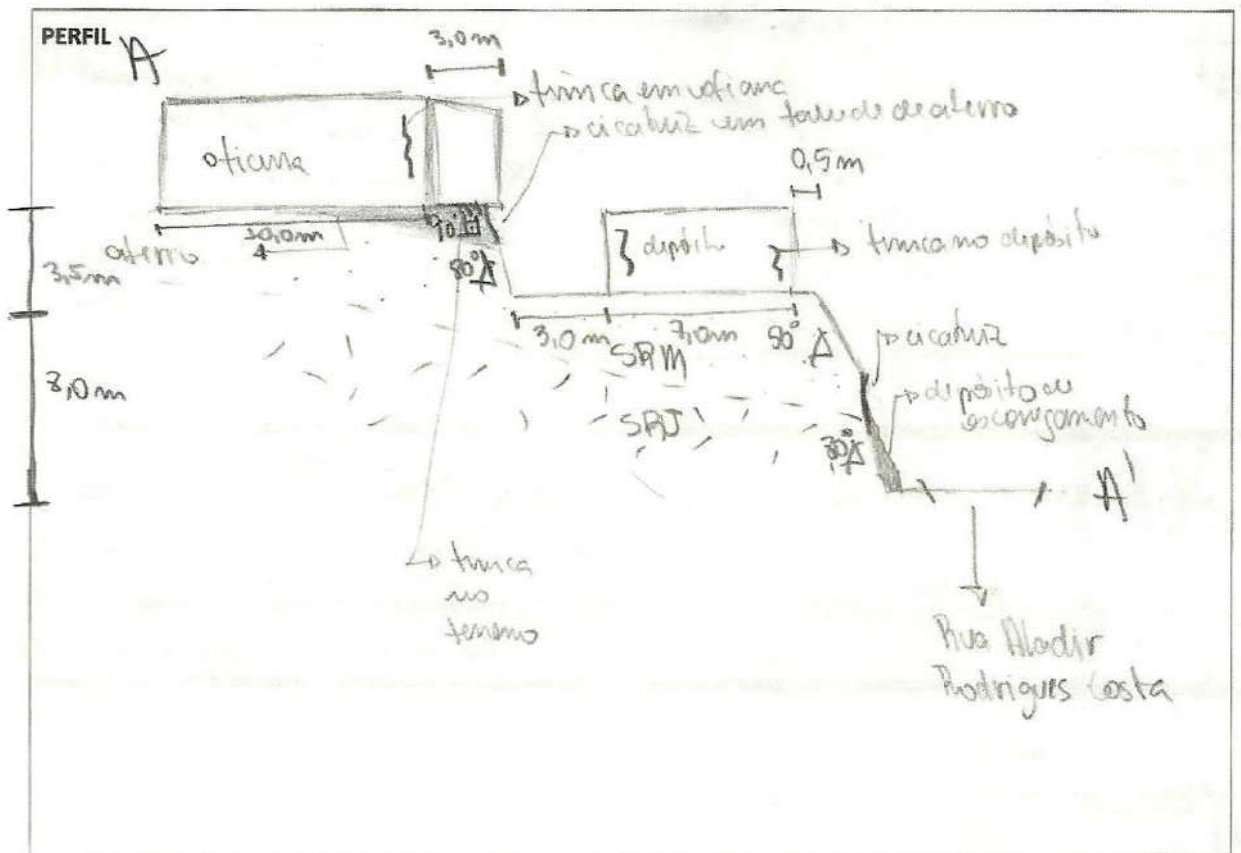 PERFIL A
3,0m
trinca em oficina
cicatriz em talude de aterro
oficina
0,5m
aterro
10,0m
depósito
trinca no depósito
3,5m
80°
3,0m
7,0m
SRM
cicatriz
depósito de
escorregamento
8,0m
SRJ
A'
trinca
no
terreno
Rua Aladir
Rodrigues Costa